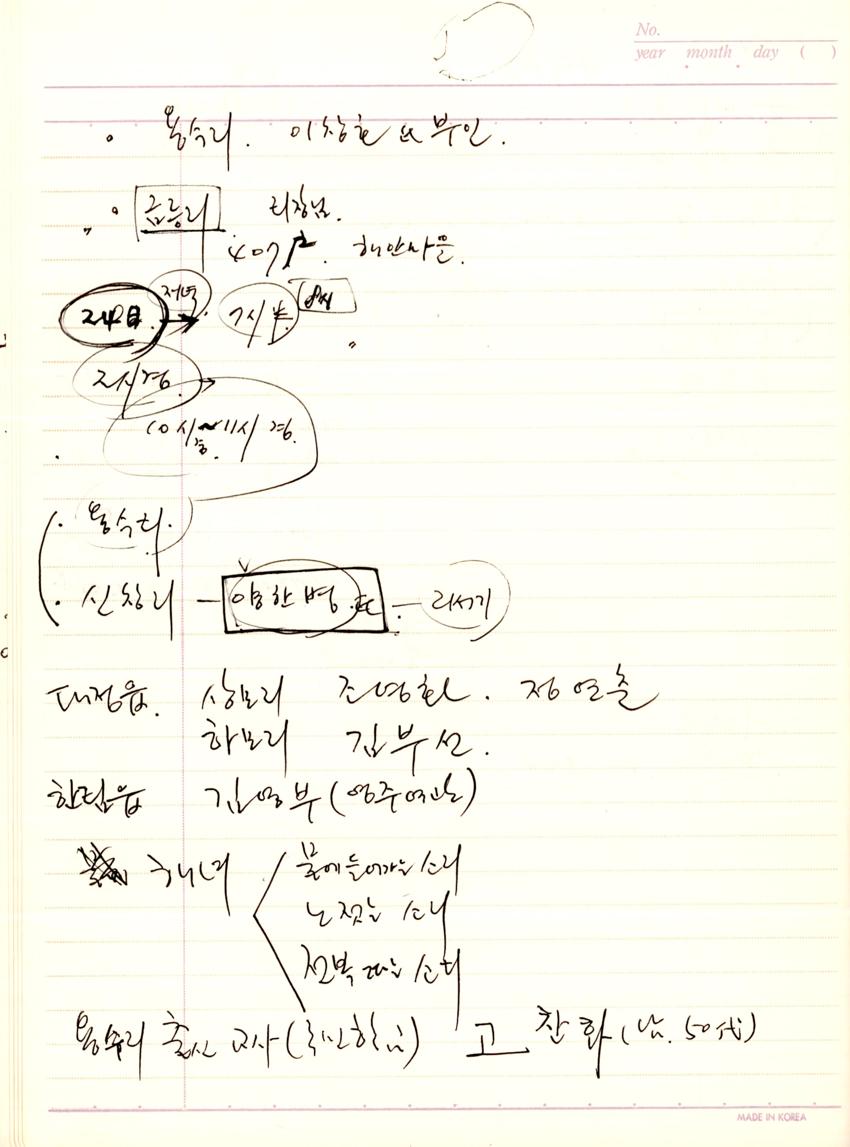 No.
year month day ( )
· 용수리. 이창현 氏 부인.
" · 금릉리 리장님.
40가구. 해안마을.
저녁
24日. → 7시半. 8시
2시경 →
10시~11시 경.
· 용수리.
· 신창리 — 양한병 氏. — 리서기
대정읍. 상모리 조영환. 정연출
하모리 김부선.
한림읍 김영부 (영주여관)
해녀
물에 들어가는 소리
노 젓는 소리
전복 따는 소리
용수리 출신 교사 ( ) 고 찬화 (남. 50代)
MADE IN KOREA